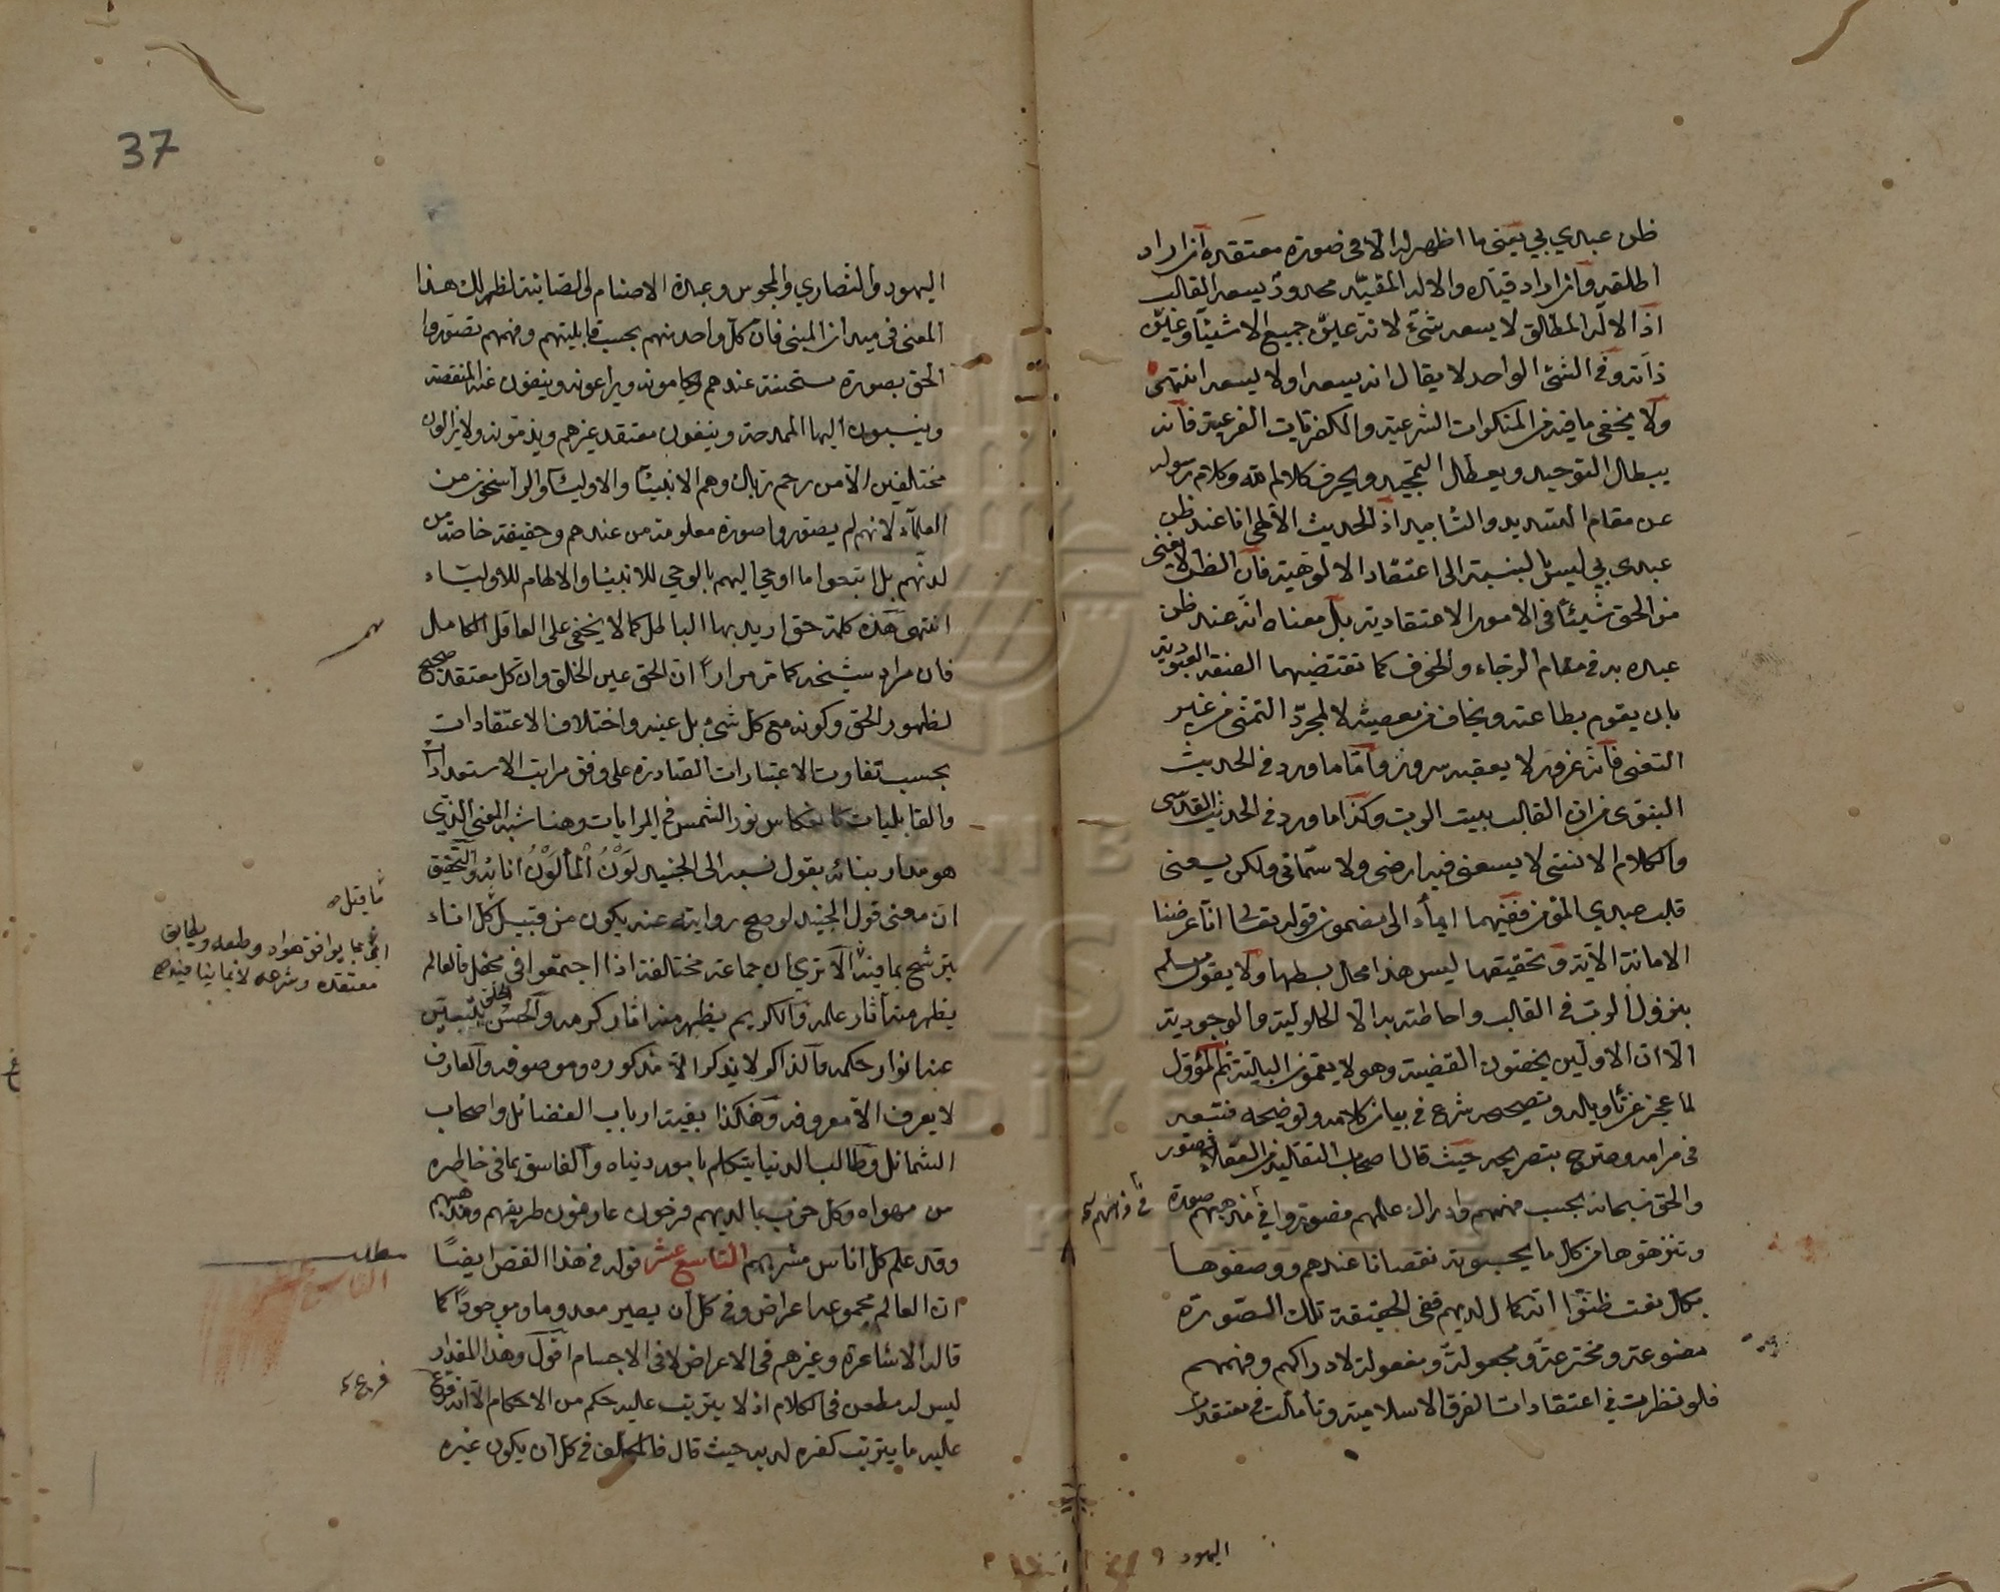 ظن عبدي بي يعني ما اظهر له الا في صورة معتقده ان اراد
اطلقه وان اراد قيده والاله المقيد محدود يسعه القلب
اذ الاله المطلق لا يسعه شيء لانه عين جميع الاشياء وعين
ذاته وفي الشئ الواحد لا يقال انه يسعه او لا يسعه انتهى
ولا يخفى ما فيه من المنكرات الشرعية والكفريات الفرعية فانه
يبطل التوحيد ويعطل التمجيد ويحرف كلام الله وكلام رسوله
عن مقام التسديد والتأييد اذ الحديث الالهي انا عند ظن
عبدي بي ليس بالنسبة الى اعتقاد الالوهية فان الظن لا يغني
من الحق شيئا في الامور الاعتقادية بل معناه انه عند ظن
عبده به في مقام الرجاء والخوف كما تقتضيهما الصفة العبودية
بان يقوم بطاعته ويخاف من معصيته لا لمجرد التمني من غير
التعني فانه غرور لا يعقبه سرور واما ما ورد في الحديث
النبوي من ان القلب بيت الرب وكذا ما ورد في الحديث القدسي
والكلام الانسي لا يسعني فيه ارضي ولا سمائي ولكن يسعني
قلب عبدي المؤمن ففيهما ايماء الى مضمون قوله تعالى انا عرضنا
الامانة الآية وتحقيقها ليس هذا محل بسطها ولا يقول مسلم
بنزول الرب في القلب واحاطته به الا الحلولية والوجودية
الا ان الاولين يخصون القضية وهولا يعمون البلية ثم المؤول
لما عجز عن تأويله وتصحيحه شرع في بيان كلامه وتوضيحه فتبعه
في مرامه وصرح بتصريحه حيث قال اصحاب التقليد من العقلاء تصور
والحق سبحانه بحسب فهمهم وادراك علمهم فصوروا في اذهانهم صورة
ونزهوها من كل ما يحسبونه نقصانا عندهم ووصفوها
بكل نعت ظنوا انه كمال لديهم ففي الحقيقة تلك الصورة
مصنوعة ومخترعة ومجعولة ومفعولة لادراكهم وفهمهم
فلو نظرت في اعتقادات الفرق الاسلامية وتأملت في معتقدات
اليهود و
37
اليهود والنصارى والمجوس وعبدة الاصنام والصابئة لظهر لك هذا
المعنى في ميدان المبنى فان كل واحد منهم بحسب قابليتهم وفهمهم تصوروا
الحق بصورة مستحسنة عندهم ويراعونه وينفون عنه المنقصة
وينسبون اليها الممدحة وينفون معتقد غيرهم ويذمونه ولا يزالون
مختلفين الا من رحم ربك وهم الانبياء والاولياء والراسخون من
العلماء لانهم لم يصوروا صورة معلومة من عندهم وحقيقة خاصة من
لدنهم بل اتبعوا ما اوحي اليهم بالوحي للانبياء والالهام للاولياء
انتهى وهذه كلمة حق اريد بها الباطل كما لا يخفى على العاقل الكامل
فان مراد شيخه كما مر مرارا ان الحق عين الخلق وان كل معتقد صحيح
لظهور الحق وكونه مع كل شيء بل عينه واختلاف الاعتقادات
بحسب تفاوت الاعتبارات الصادرة على وفق مراتب الاستعدادات
والقابليات كانعكاس نور الشمس في المرايات وهنا شبه المعنى الذي
هو مدار بنائه بقول نسبه الى الجنيد لون الماء لون انائه والتحقيق
ان معنى قول الجنيد لو صح روايته عنه يكون من قبيل كل اناء
يترشح بما فيه الا ترى ان جماعة مختلفة اذا اجتمعوا في محفل فالعالم
يظهر منه آثار علمه والكريم يظهر منه آثار كرمه
عنه انوار حكمه والذاكر لا يذكر الا مذكوره وموصوفه والعارف
لا يعرف الا معروفه وهكذا بقية ارباب الفضائل واصحاب
الشمائل وطالب الدنيا يتكلم بامور دنياه والفاسق بما في خاطره
من مهواه وكل حزب بما لديهم فرحون عارفون طريقهم ومذهبهم
وقد علم كل اناس مشربهم التاسع عشر قوله في هذا الفص ايضا
ان العالم مجموعه اعراض وفي كل آن يصير معدوما وموجودا كما
قاله الاشاعرة وغيرهم في الاعراض لا في الاجسام اقول وهذا المقدار
ليس له مطعن في الكلام اذ لا يترتب عليه حكم من الاحكام الا انه فرع
عليه ما يترتب كفره لديه حيث قال فالمكلف في كل آن يكون غيره
بما يوافق هواه وطبعه
معتقده وشرعه
مطلب
التاسع عشر
فرع